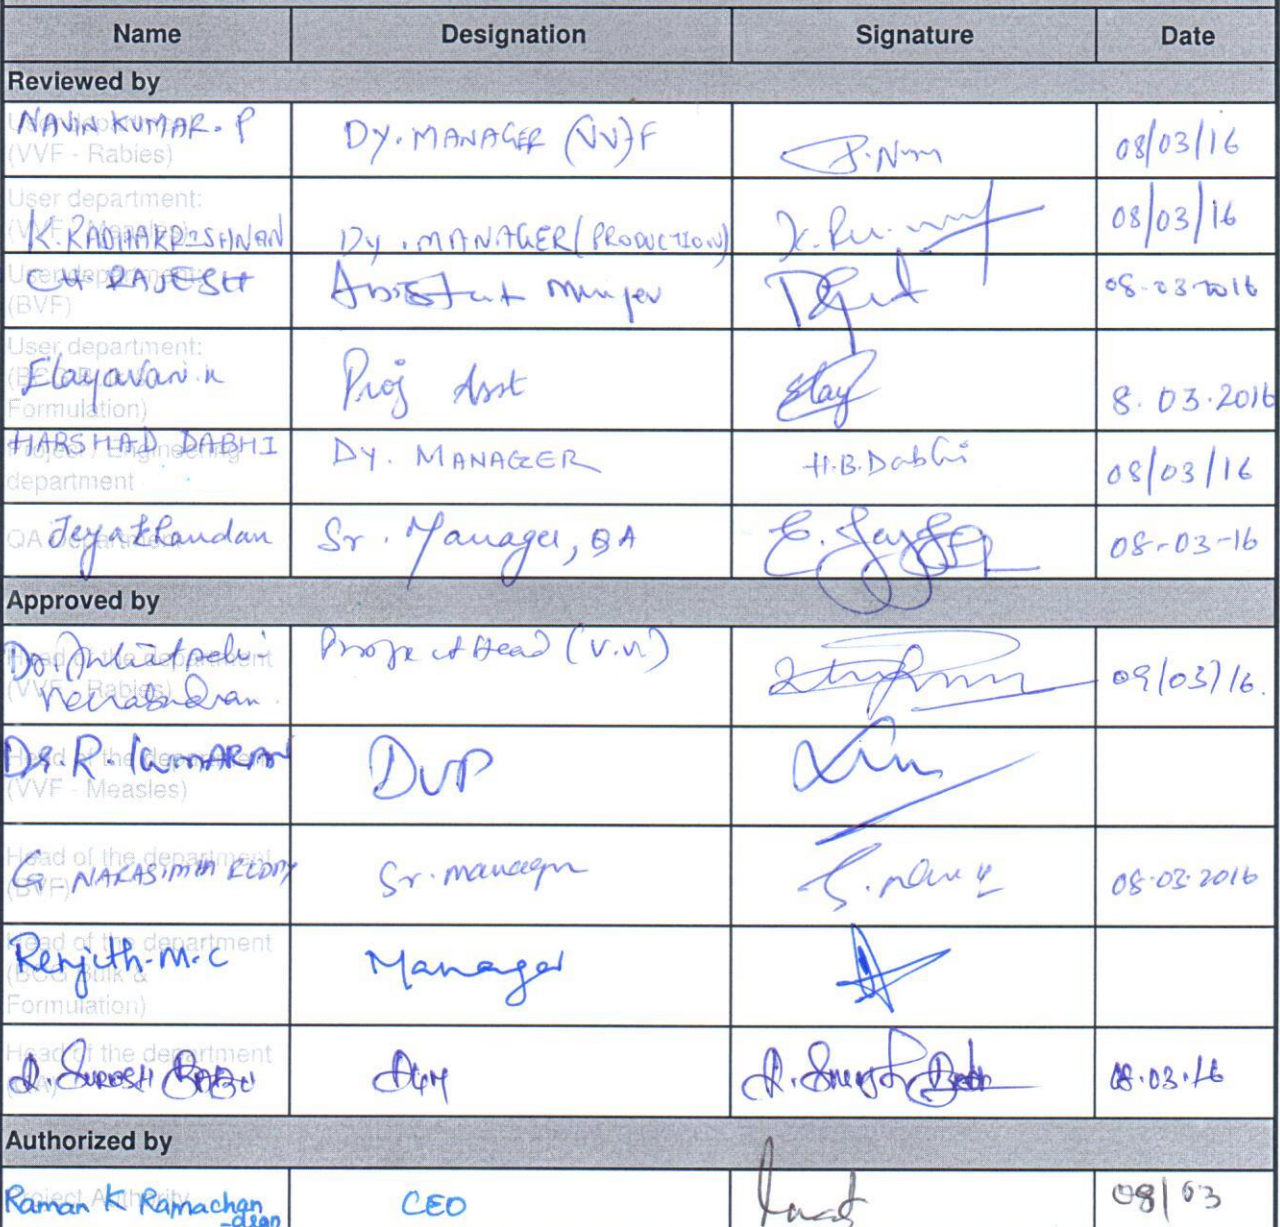 Name Designation Signature Date
Reviewed by
User department:
(VVF - Rabies)
NAVIN KUMAR. P DY. MANAGER (VV)F 08/03/16
User department:
(VVF - Measles)
K. RADHAKRISHNAN Dy. MANAGER (PRODUCTION) 08/03/16
User department:
(BVF)
CH. RAJESH Assistant 08-03-2016
User department:
Formulation)
Elayavani.k Proj Asst Elay 8.03.2016
Project / Engineering
department
HARSHAD DABHI DY. MANAGER H.B.Dabhi 08/03/16
QA Department
Sr. Manager, QA 08-03-16
Approved by
Head of the department
(VVF - Rabies)
Dr. Project Head 09/03/16.
Head of the department
(VVF - Measles)
Dr. R. KUMARAN DVP
Head of the department
(BVF)
G. NARASIMHA REDDY Sr. manager 08.03.2016
Head of the department
(BCG Bulk &
Formulation)
Renjith.M.C Manager
Head of the department
SURESH BABU 08.03.16
Authorized by
Project Authority
Raman K Ramachan CEO 08/03
-dran